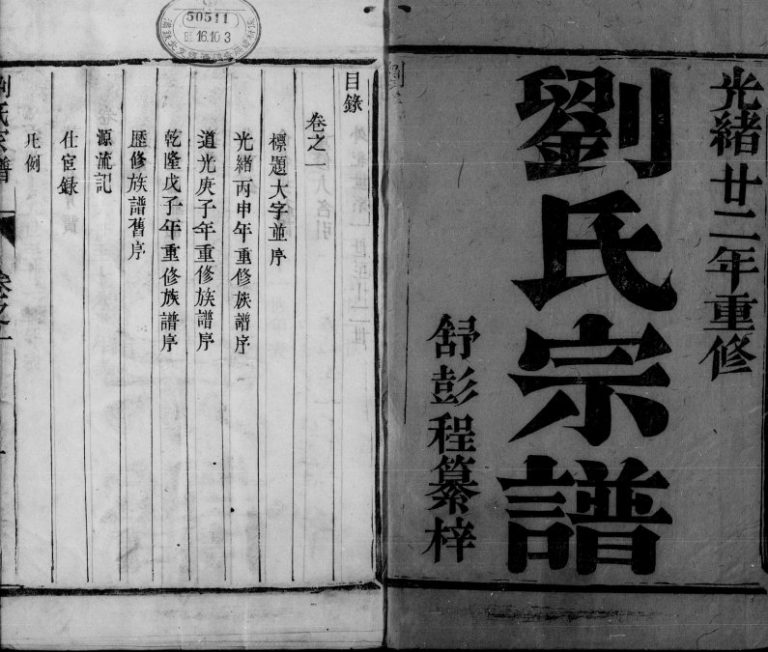 光緒廿二年重修
劉氏宗譜
舒彭程纂梓
目錄
卷之一
標題大字並序
光緒丙申年重修族譜序
道光庚子年重修族譜序
乾隆戊子年重修族譜序
歷修族譜舊序
源流記
仕宦錄
凡例
劉氏宗譜
卷之一
50511
16.10.3